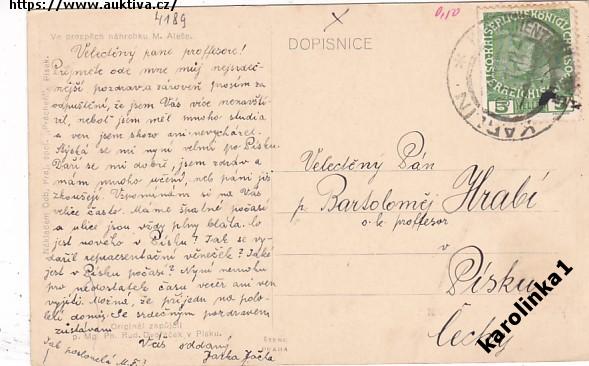 https://www.auktiva.cz/
4189
0,50
Ve prospěch náhrobku M. Aleše.
DOPISNICE
Velectěný pane proffesore!
Přijmete ode mne můj nejsrdeč-
nější pozdrav a zároveň prosím za
odpuštění, že jsem Vás více nenavští-
vil, neboť jsem měl mnoho studia
a ven jsem skoro ani nevycházel.
Stýská se mi nyní velmi po Písku.
Daří se mi dobře, jsem zdráv a
mám mnoho učení, neb páni již
zkoušejí. Vzpomínám si na Vás
velice často. Máme špatné počasí
a ulice jsou vždy plny bláta. Co
jest nového v Písku? Jak se vy-
dařil representační věneček? Jaké
jest v Písku počasí? Nyní nemohu
pro nedostatek času večer ani ven
vyjíti. Možná, že přijedu na polo-
letí domů. Se srdečným pozdravem
zůstávám
Váš oddaný
Originál zapůjčil
p. Mg. Ph. Rud. Dvořáček v Písku.
Velectěný Pán
p. Bartoloměj Hrabí
c. k. proffesor
v
Písku
Čechy
KAROLIN
karolinka1